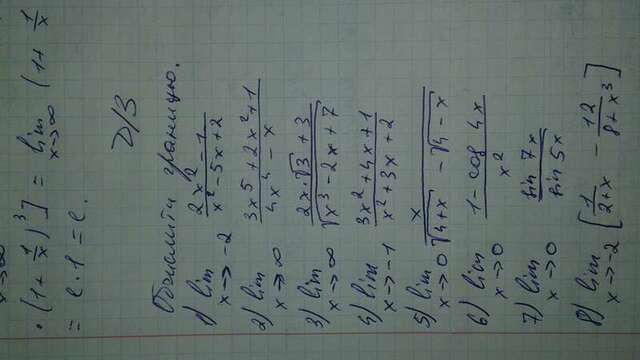 x→∞
· (1 + 1/x)³ ] = lim x→∞ (1 + 1/x
= e · 1 = e.
Д/З
Обчислити границю.
1) lim x→-2 (2x² - 1)/(x² - 5x + 2)
2) lim x→∞ (3x⁵ + 2x² + 1)/(4x⁴ - x)
3) lim x→∞ (2x·√3 + 3)/√(x³ - 2x + 7)
4) lim x→-1 (3x² + 4x + 1)/(x² + 3x + 2)
5) lim x→0 x/(√(4+x) - √(4-x))
6) lim x→0 (1 - cos 4x)/x²
7) lim x→0 sin 7x/sin 5x
8) lim x→-2 [1/(2+x) - 12/(8+x³)]